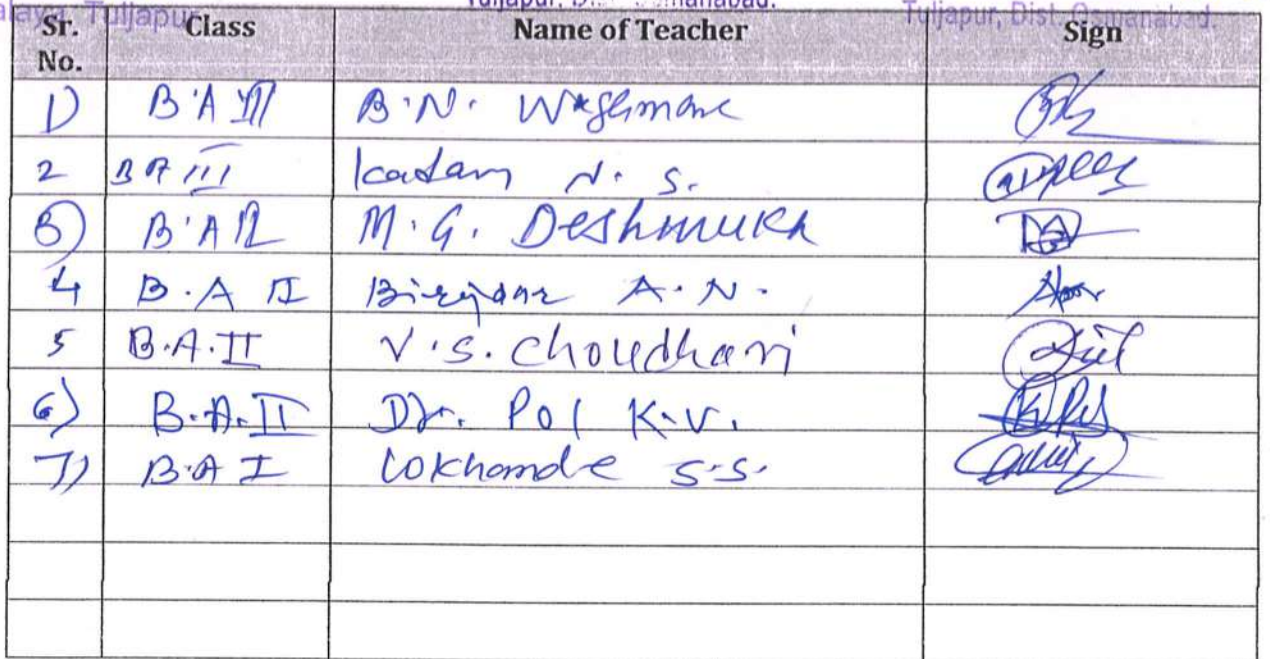 Tuljapur Tuljapur, Dist. Osmanabad. Tuljapur, Dist. Osmanabad.
Sr. No. Class Name of Teacher Sign
1) B.A III B.N. Waghmare
2 BA III Kadam N. S.
3) B.A II M.G. Deshmukh
4 B.A II Birajdar A.N.
5 B.A.II V.S. Choudhari
6) B.A.II Dr. Pol K.V.
7) B.A I Lokhande S.S.